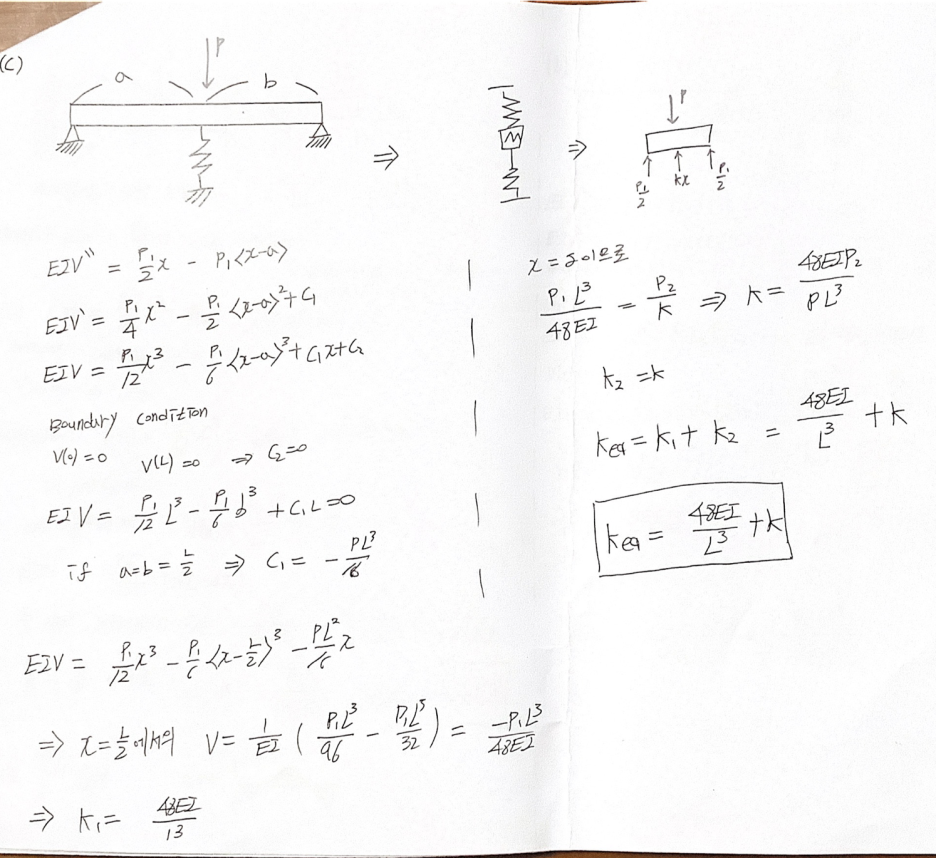 (C)
a P b
P
P₁/2 kx P₁/2
EIV`` = P₁/2 x - P₁<x-a>
EIV` = P₁/4 x² - P₁/2 <x-a>² + C₁
EIV = P₁/12 x³ - P₁/6 <x-a>³ + C₁x + C₂
Boundary condition
V(0)=0 V(L)=0 ⇒ C₂=0
EIV = P₁/12 L³ - P₁/6 b³ + C₁L = 0
if a=b= L/2 ⇒ C₁ = - PL³/16
EIV = P₁/12 x³ - P₁/6 <x - L/2>³ - PL²/16 x
⇒ x= L/2 에서의 V = 1/EI ( P₁L³/96 - P₁L³/32 ) = -P₁L³/48EI
⇒ k₁ = 48EI/L³
P₁L³/48EI = P₂/k ⇒ k = 48EIP₂/PL³
k₂ = k
keq = k₁ + k₂ = 48EI/L³ + k
keq = 48EI/L³ + k